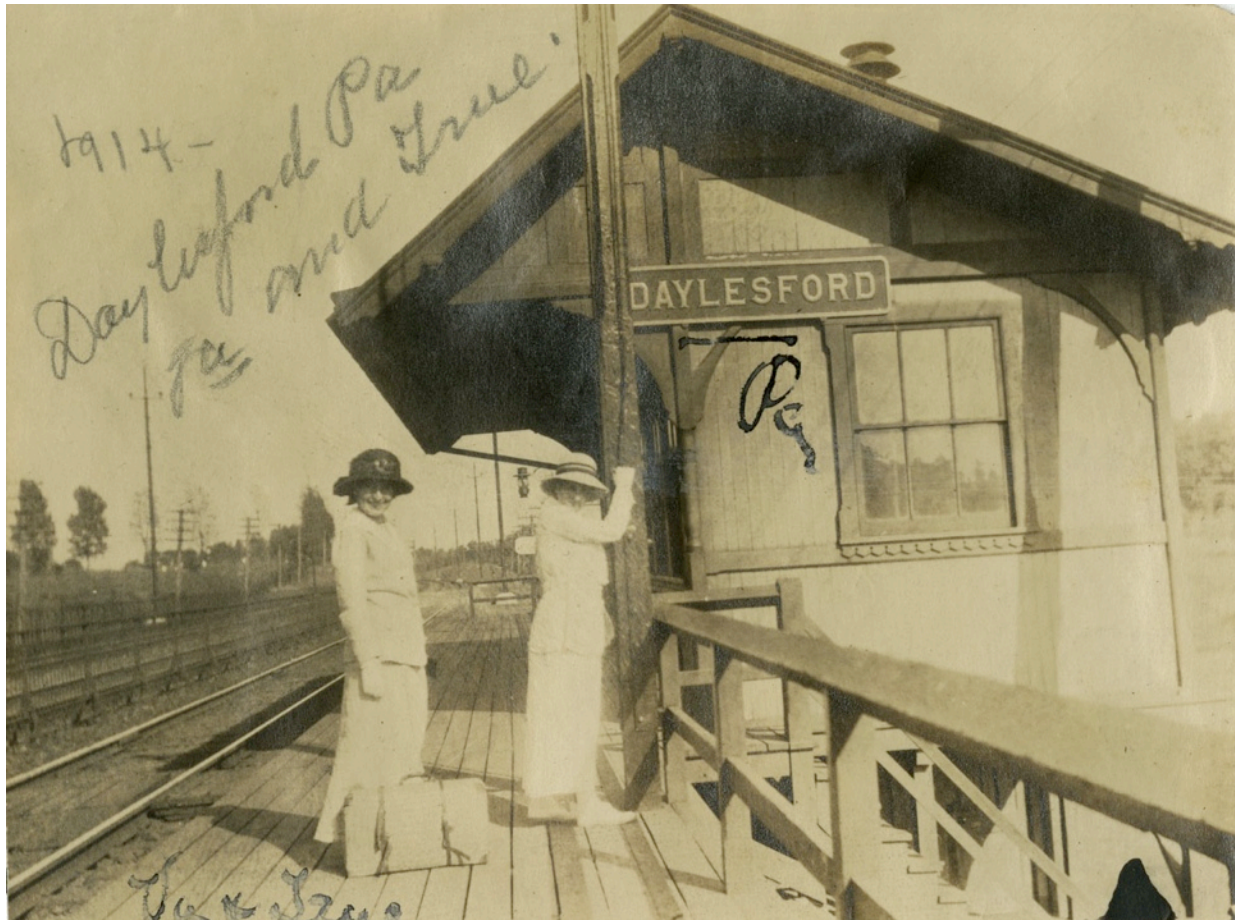 1914-
Daylesford Pa
and True
DAYLESFORD
Pa
& True